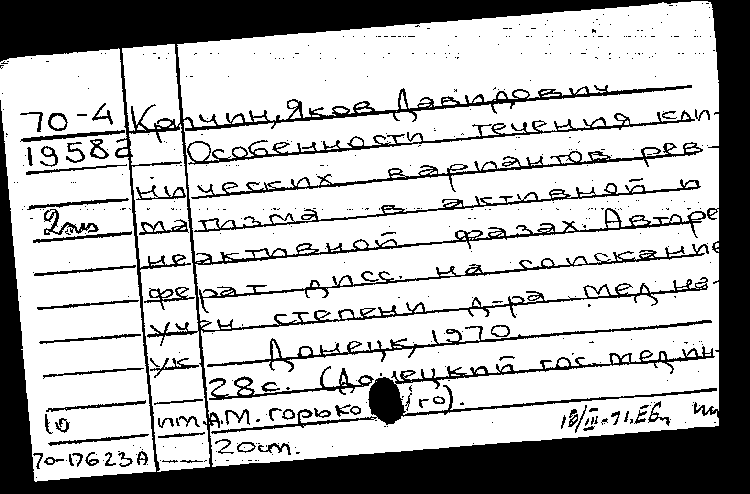 70-4 Кричин, Яков Давидович
19582 Особенности течения кли-
нических вариантов рев-
2 матизма в активной и
неактивной фазах. Авторе
ферат дисс. на соискание
учен. степени д-ра мед. на-
ук Донецк, 1970.
28 с. (Донецкий гос. мед ин-
10 им. А.М. Горько/го).
18/III-71.
70-17623А 20